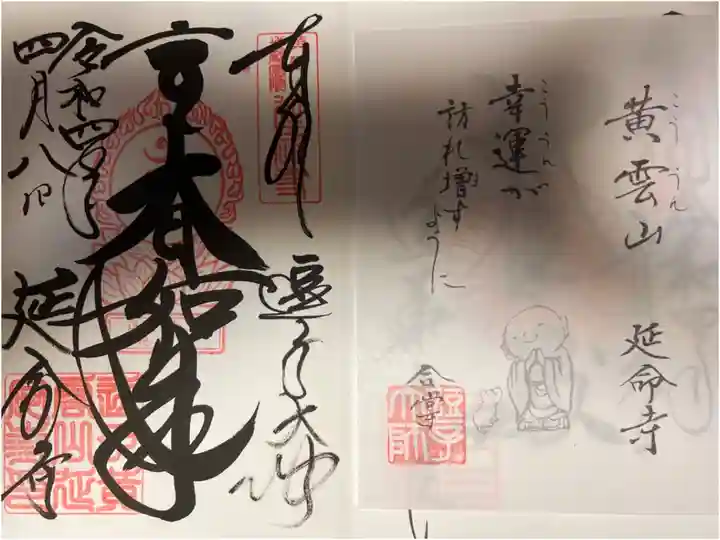 奉拝
逗子大師
令和四年
四月八日
延命寺
こう うん
黄雲山 延命寺
こう うん
幸運が
訪れ増す
ように
合掌
逗子大師